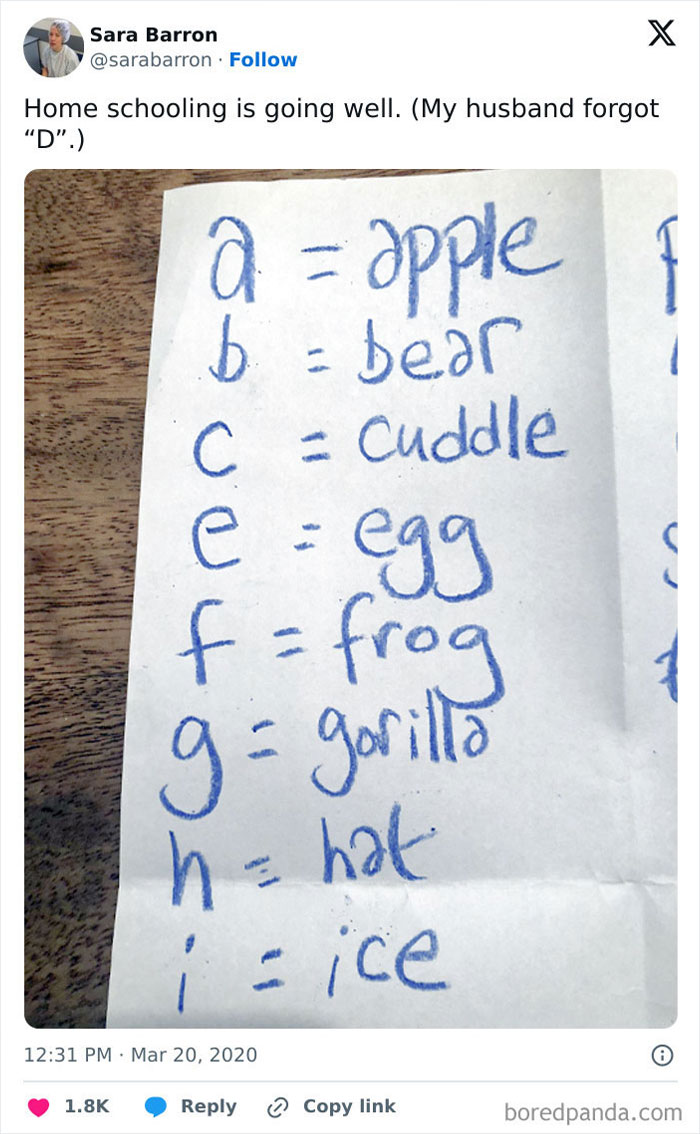 Sara Barron
@sarabarron · Follow
Home schooling is going well. (My husband forgot
“D”.)
a = apple
b = bear
c = cuddle
e = egg
f = frog
g = gorilla
h = hat
i = ice
12:31 PM · Mar 20, 2020
1.8K Reply Copy link
boredpanda.com